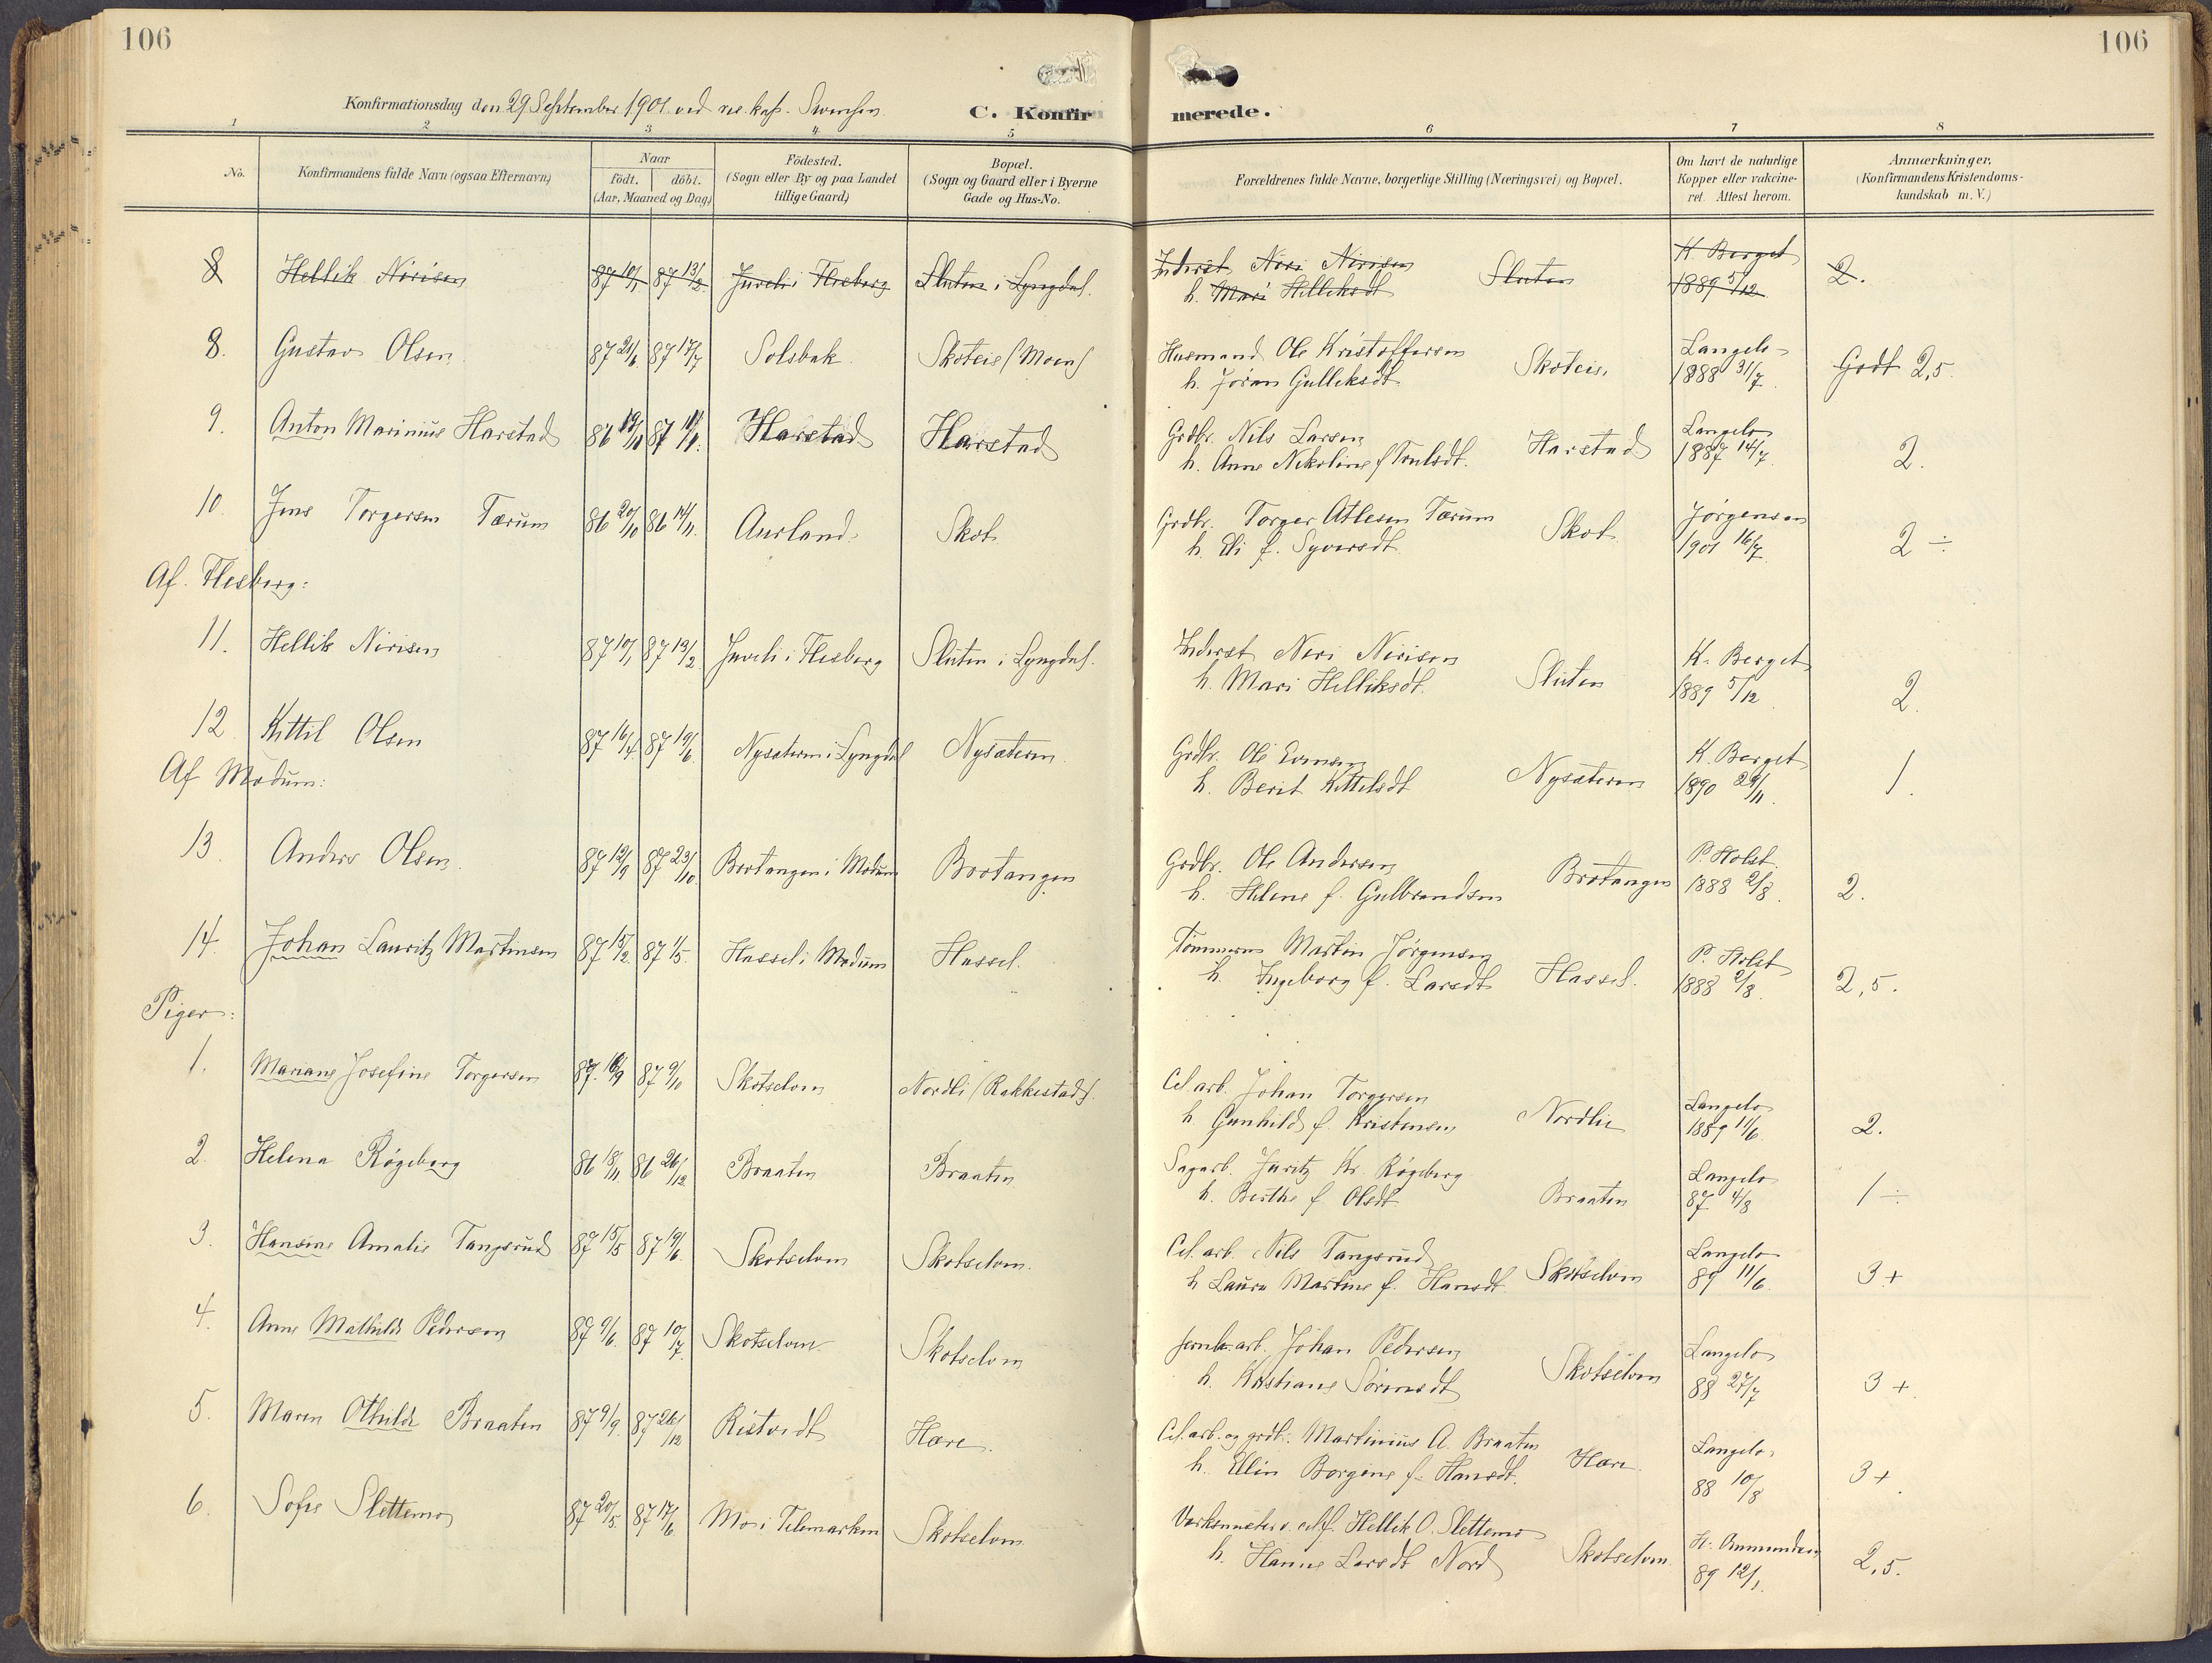 106
106
Konfirmationsdag den 29 September 1901 ved res. kap.
C. Konfirmerede.
1 2 3 4 5 6 7 8
No. Konfirmandens fulde Navn (ogsaa Efternavn) Naar födt. döbt. (Aar, Maaned og Dag) Födested. (Sogn eller By og paa Landet tillige Gaard) Bopæl. (Sogn og Gaard eller i Byerne Gade og Hus-No. Forældrenes fulde Navne, borgerlige Stilling (Næringsvei) og Bopæl. Om havt de naturlige Kopper eller vakcineret. Attest herom. Anmærkninger. (Konfirmandens Kristendomskundskab m. V.)
8 Hellik Nirisen 87 10/1 87 13/2 Juveli i Flesberg Sluten i Lyngdal. Inderst Neri Nirisen Sluten K. Berget
h. Mari Helliksdt. 1889 5/12 2.
8. Gustav Olsen 87 21/6 87 17/7 Solsbak Skoteie (Moen) Husmand Ole Kristoffersen Skoteie. Langelo
h. Jøran Gulliksdt. 1888 31/7 Godt 2,5.
9. Anton Marinius Harstad 86 19/11 87 Harstad Harstad Grdbr. Nils Larsen Harstad Langelo
h. Anne Nikoline f. Trulsdt. 1887 14/7. 2.
10. Jens Torgersen Tærum 86 20/10 86 14/11. Aurland Skot Grdbr. Torger Atlesen Tærum Skot Jørgensen
h. Eli f. Syversdt. 1901 16/7. 2 ÷
Af Flesberg:
11. Hellik Nirisen 87 10/1 87 13/2 Juveli i Flesberg Sluten i Lyngdal. Inderst Neri Nirisen Sluten K. Berget
h. Mari Helliksdt. 1889 5/12 2.
12 Kittil Olsen 87 16/4 87 19/6 Nysæteren i Lyngdal Nysæteren. Grdbr. Ole Evensen Nysæteren K. Berget
h. Berit Kittelsdt 1890 29/11. 1.
Af Modum:
13. Anders Olsen. 87 12/9 87 23/10 Brotangen i Modum Brotangen Grdbr. Ole Andersen Brotangen P. Holst
h. Helene f. Gulbrandsen 1888 2/8. 2.
14. Johan Lauritz Martinsen 87 15/2 87 1/5. Hassel i Modum Hassel. Tømmerm. Martin Jørgensen Hassel. P. Holst
h. Ingeborg f. Larsdt. 1888 2/8. 2,5.
Piger:
1. Mariane Josefine Torgersen 87 16/9 87 9/10 Skotselven Nordli (Rakkestad). Cel.arb. Johan Torgersen Nordlie Langelo
h. Gunhild f. Kristensen 1889 11/6. 2.
2. Helena Røgeberg 86 18/11 86 26/12 Braaten Braaten Sagarb. Juritz Kr. Røgeberg Braaten Langelo
h. Berthe f. Olsdt. 87 4/8 1 ÷
3. Hansine Amalie Tangsrud 87 15/5 87 19/6 Skotselven Skotselven. Cel.arb. Nils Tangsrud Skotselven Langelo
h. Laura Martine f. Hansdt. 89 11/6. 3+
4. Anne Mathilde Pedersen 87 9/6 87 10/7. Skotselven Skotselven Jernb.arb. Johan Pedersen Skotselven Langelo
h. Kristiane Sørensdt 88 27/7 3 +
5. Maren Othilde Braaten 87 9/9. 87 26/12 Ristvedt Hære. Cel.arb. og grdb. Martinius A. Braaten Hære Langelo.
h. Ellen Borgine f. Hansdt. 88 10/8 3+
6. Sofie Slettemo 87 20/5. 87 17/6. Mo i Telemarken Skotselven Hellik O. Slettemo Skotselven
h. Hanne Larsdt Nord 89 12/1. 2,5.